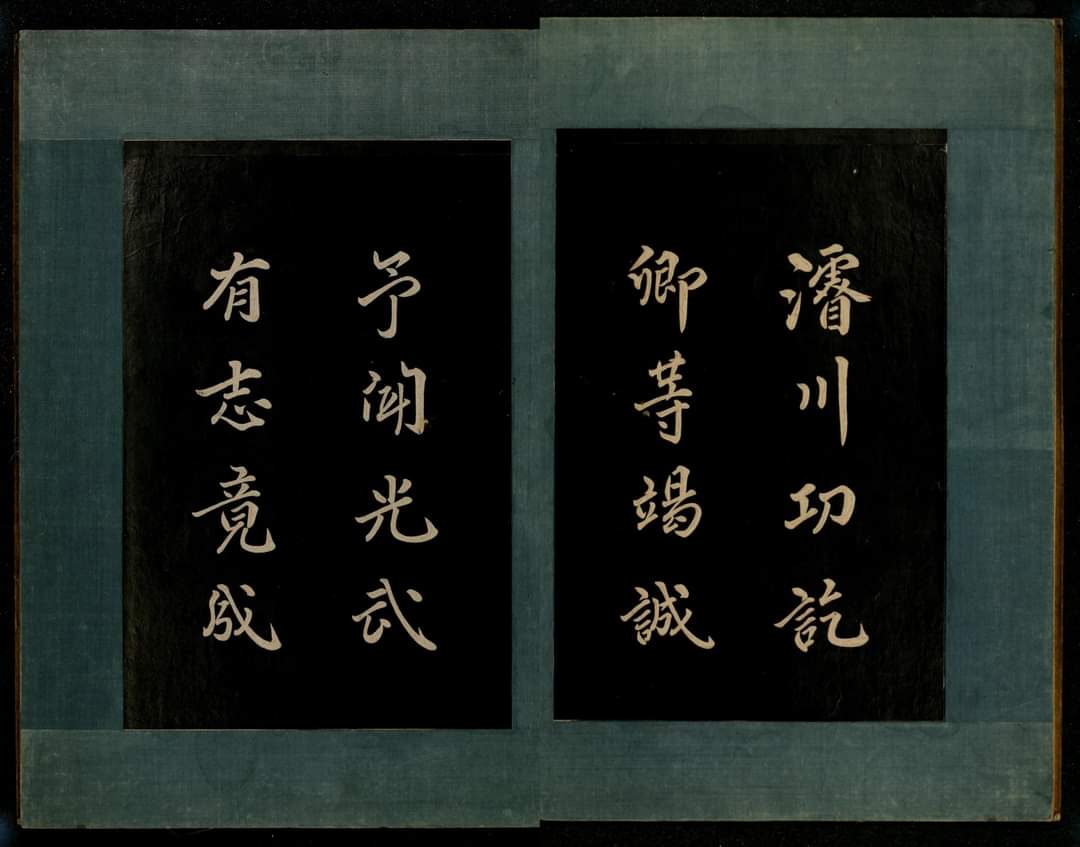 濬川功訖
卿等竭誠
予聞光武
有志竟成